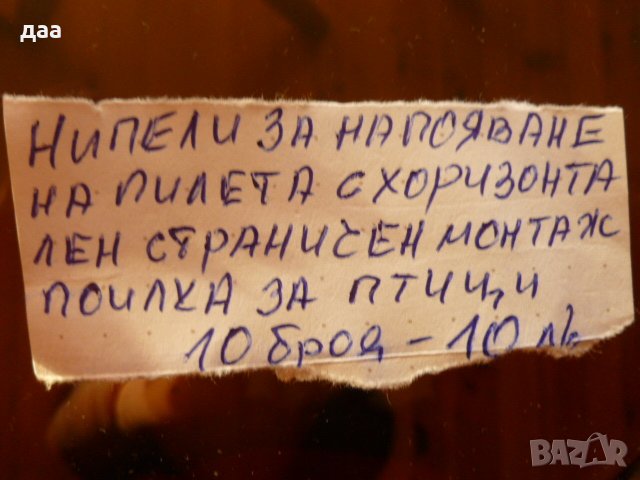 даа
НИПЕЛИ ЗА НАПОЯВАНЕ
НА ПИЛЕТА С ХОРИЗОНТА
ЛЕН СТРАНИЧЕН МОНТАЖ
ПОИЛКА ЗА ПТИЦИ
10 броя - 10 лв
BAZAR